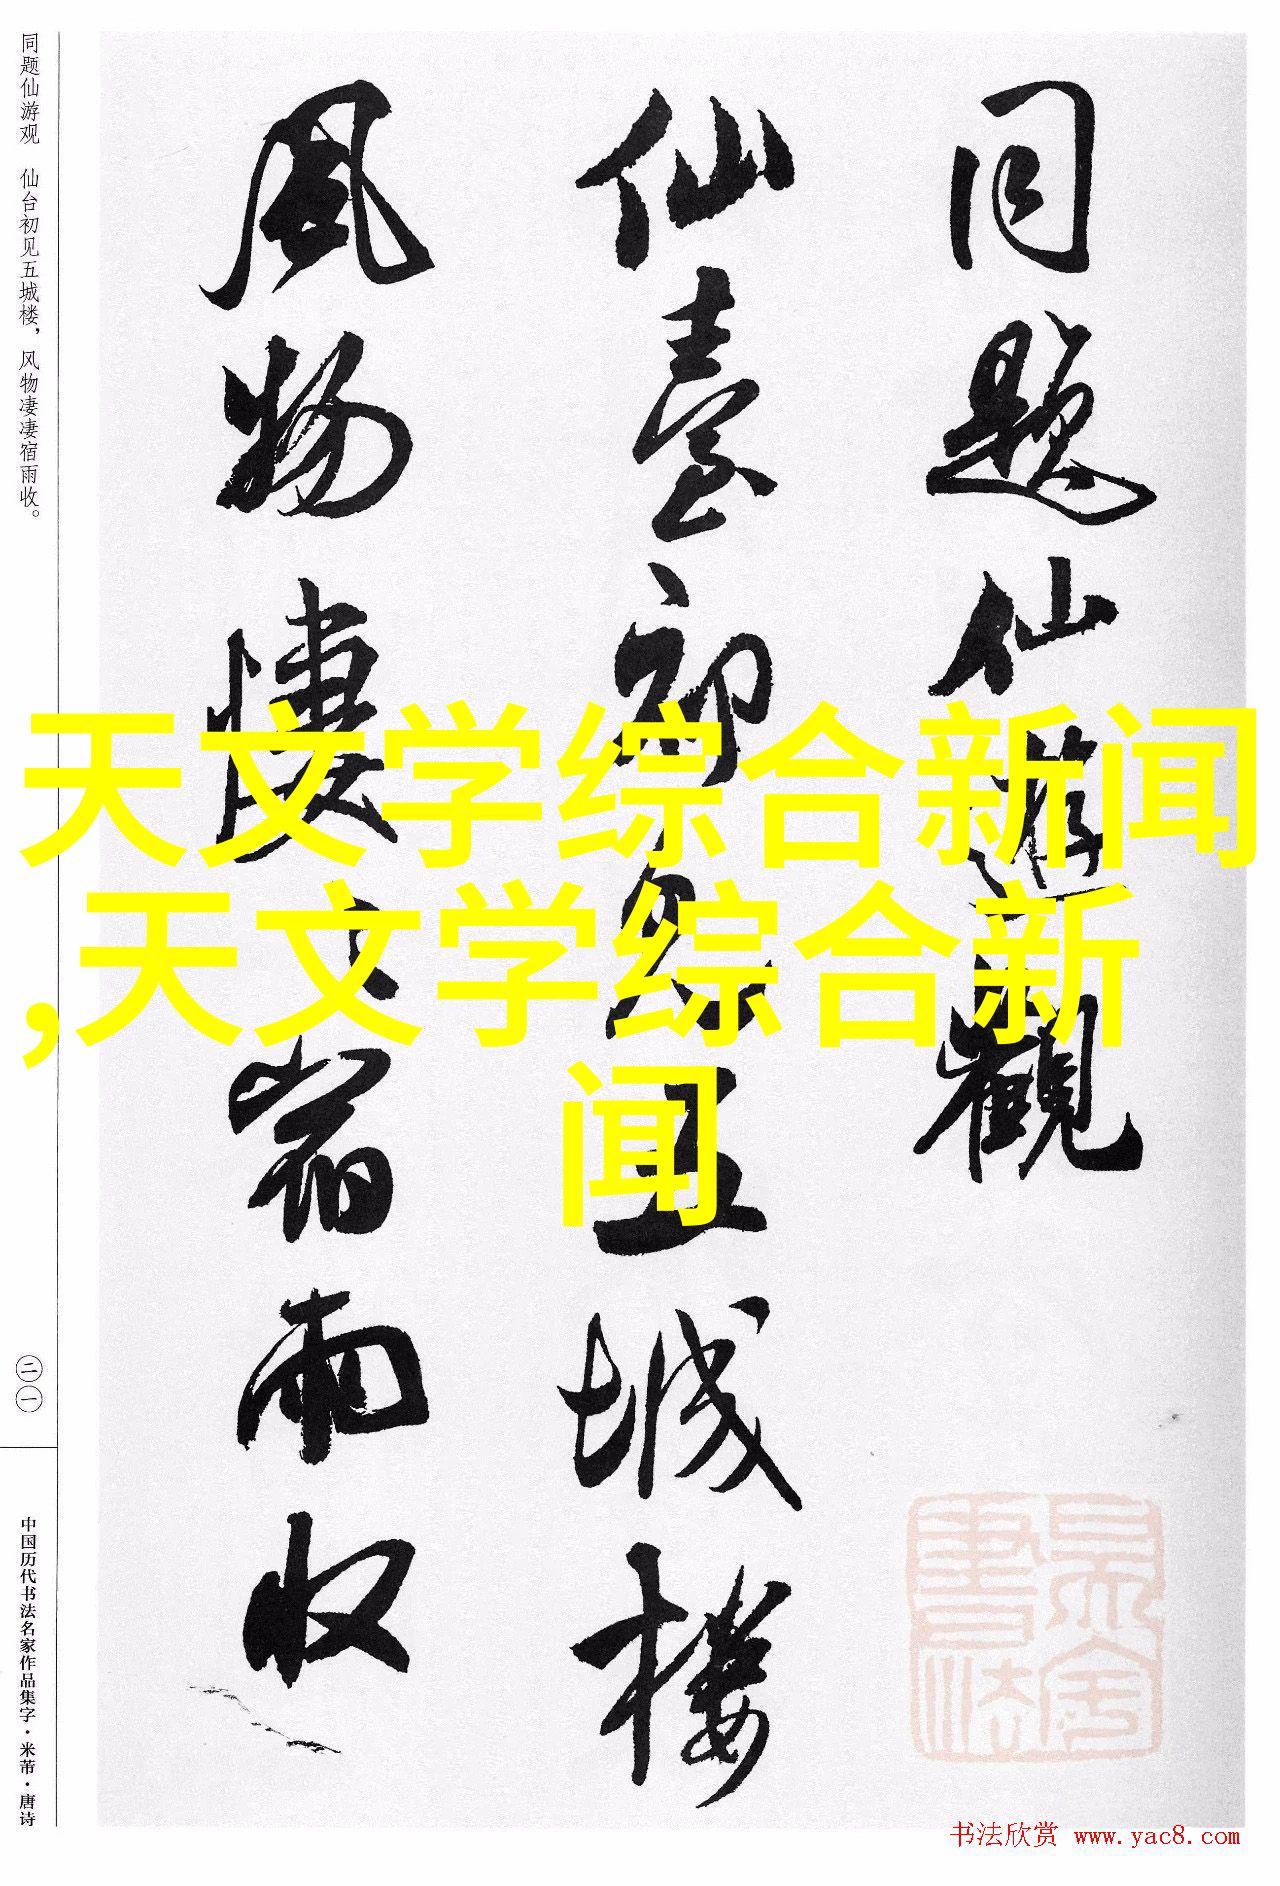 同题仙游观　仙台初见五城楼，风物凄凄宿雨收。
二一
中国历代书法名家作品集字·米芾·唐诗
同题仙遊觀
仙臺初见五城楼
风物悽〻宿雨收
天文学综合新闻
,天文学综合新
闻
吴金書法
书法欣赏 www.yac8.com